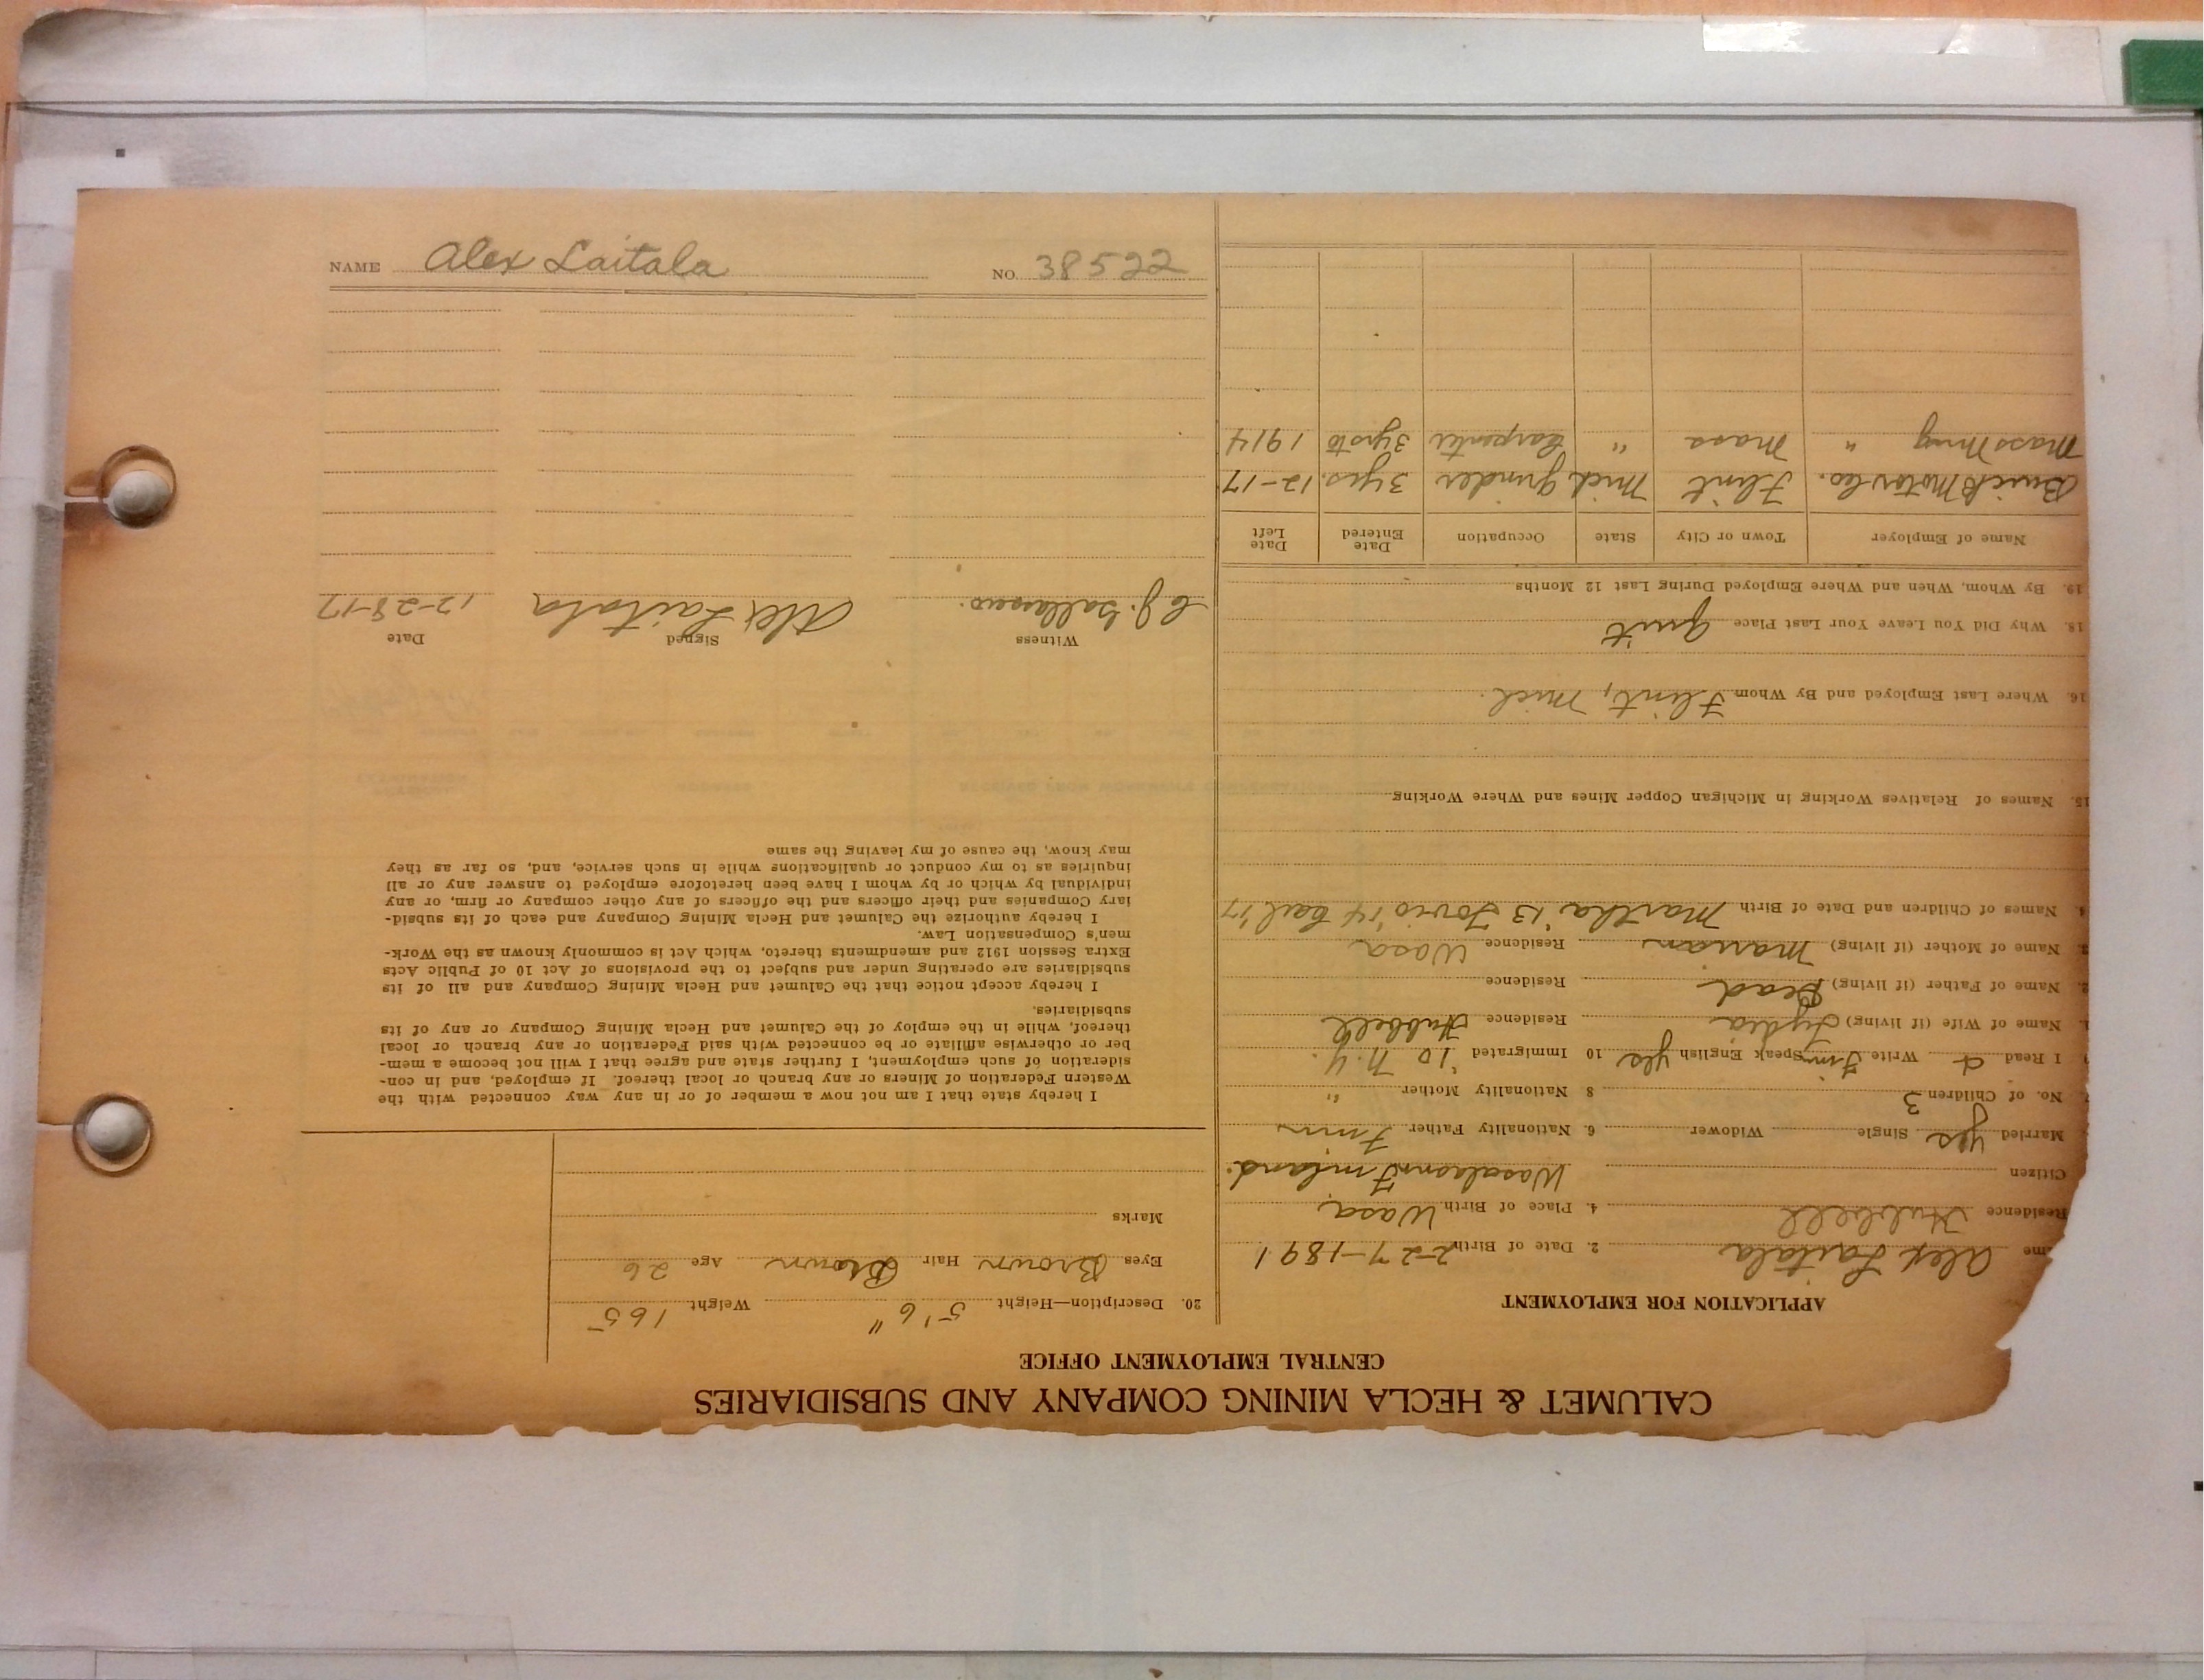 NAME Alex Laitala NO. 38522
CALUMET & HECLA MINING COMPANY AND SUBSIDIARIES
CENTRAL EMPLOYMENT OFFICE
APPLICATION FOR EMPLOYMENT
me Alex Laitala 2. Date of Birth 2-27-1891
Residence Hubbell 4. Place of Birth Wasa
Citizen Finland.
Married yes Single Widower 6. Nationality Father Finn
No. of Children 3 8 Nationality Mother "
I Read & Write Finn Speak English yes 10 Immigrated '10 N.Y.
1. Name of Wife (if living) Lydia Residence Hubbell
2. Name of Father (if living) Dead Residence
3. Name of Mother (if living) Marian Residence Wasa
4. Names of Children and Date of Birth Martha '13 Toivo '14 '17
15. Names of Relatives Working in Michigan Copper Mines and Where Working
16. Where Last Employed and By Whom Flint, Mich.
18. Why Did You Leave Your Last Place quit
19. By Whom, When and Where Employed During Last 12 Months
Name of Employer Town or City State Occupation Date Entered Date Left
Buick Motor Co. Flint Mich Grinder 3 yrs. 12-17
Mass Mng " Mass " Carpenter 3 yrs to 1914
20. Description—Height 5'6" Weight 165
Eyes Brown Hair Brown Age 26
Marks
I hereby state that I am not now a member of or in any way connected with the
Western Federation of Miners or any branch or local thereof. If employed, and in con-
sideration of such employment, I further state and agree that I will not become a mem-
ber or otherwise affiliate or be connected with said Federation or any branch or local
thereof, while in the employ of the Calumet and Hecla Mining Company or any of its
subsidiaries.
I hereby accept notice that the Calumet and Hecla Mining Company and all of its
subsidiaries are operating under and subject to the provisions of Act 10 of Public Acts
Extra Session 1912 and amendments thereto, which Act is commonly known as the Work-
men's Compensation Law.
I hereby authorize the Calumet and Hecla Mining Company and each of its subsid-
iary Companies and their officers and the officers of any other company or firm, or any
individual by which or by whom I have been heretofore employed to answer any or all
inquiries as to my conduct or qualifications while in such service, and, so far as they
may know, the cause of my leaving the same
Witness Signed Date
C.J. Alex Laitala 12-28-17